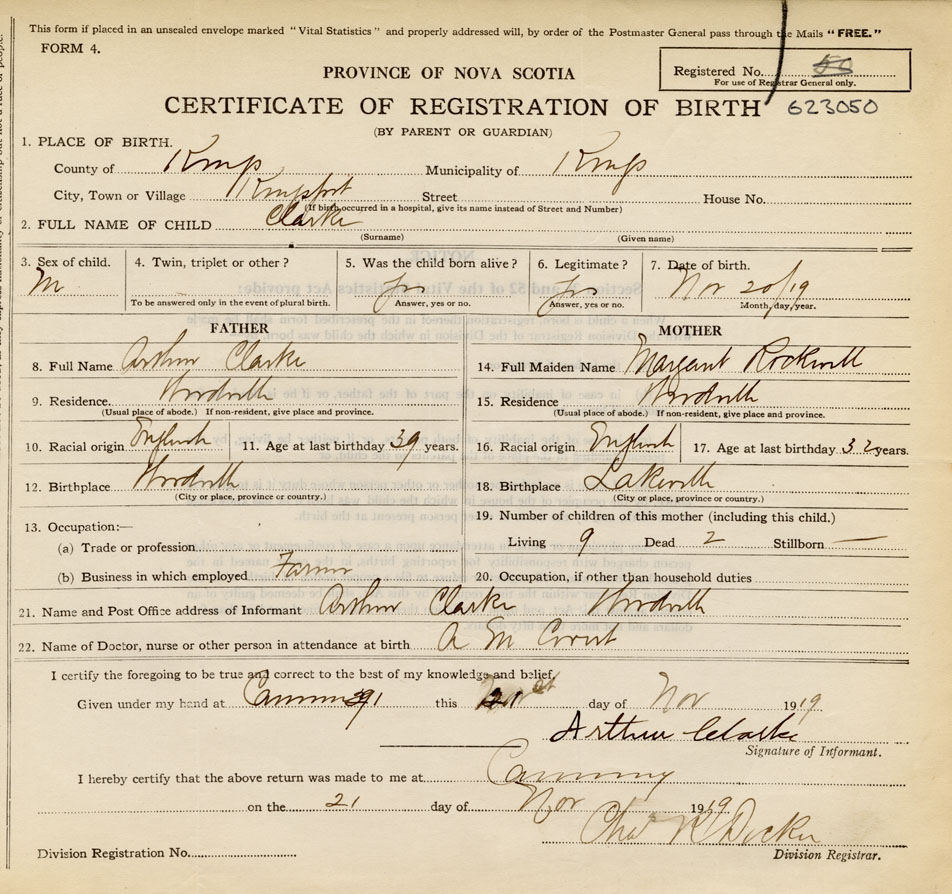 This form if placed in an unsealed envelope marked "Vital Statistics" and properly addressed will, by order of the Postmaster General pass through the Mails "FREE."
FORM 4.
Registered No.
For use of Registrar General only.
PROVINCE OF NOVA SCOTIA
CERTIFICATE OF REGISTRATION OF BIRTH 623050
(BY PARENT OR GUARDIAN)
1. PLACE OF BIRTH.
County of Kings Municipality of Kings
City, Town or Village Kingsport Street House No.
(If birth occurred in a hospital, give its name instead of Street and Number)
2. FULL NAME OF CHILD Clarke
(Surname) (Given name)
3. Sex of child. 4. Twin, triplet or other? 5. Was the child born alive? 6. Legitimate? 7. Date of birth.
M yes yes Nov 20/19
To be answered only in the event of plural birth. Answer, yes or no. Answer, yes or no. Month, day, year.
FATHER MOTHER
8. Full Name Arthur Clarke 14. Full Maiden Name Margaret Rockwell
9. Residence. Woodville 15. Residence Woodville
(Usual place of abode.) If non-resident, give place and province. (Usual place of abode.) If non-resident, give place and province.
10. Racial origin English 11. Age at last birthday 39 years. 16. Racial origin English 17. Age at last birthday 32 years.
12. Birthplace Woodville 18. Birthplace Lakeville
(City or place, province or country.) (City or place, province or country.)
13. Occupation:— 19. Number of children of this mother (including this child.)
(a) Trade or profession Living 9 Dead 2 Stillborn —
(b) Business in which employed Farmer 20. Occupation, if other than household duties
21. Name and Post Office address of Informant Arthur Clarke Woodville
22. Name of Doctor, nurse or other person in attendance at birth A M
I certify the foregoing to be true and correct to the best of my knowledge and belief.
Given under my hand at Canning this day of Nov 1919
Arthur Clarke
Signature of Informant.
I hereby certify that the above return was made to me at Canning
on the 21 day of Nov 1919
Division Registration No. Division Registrar.